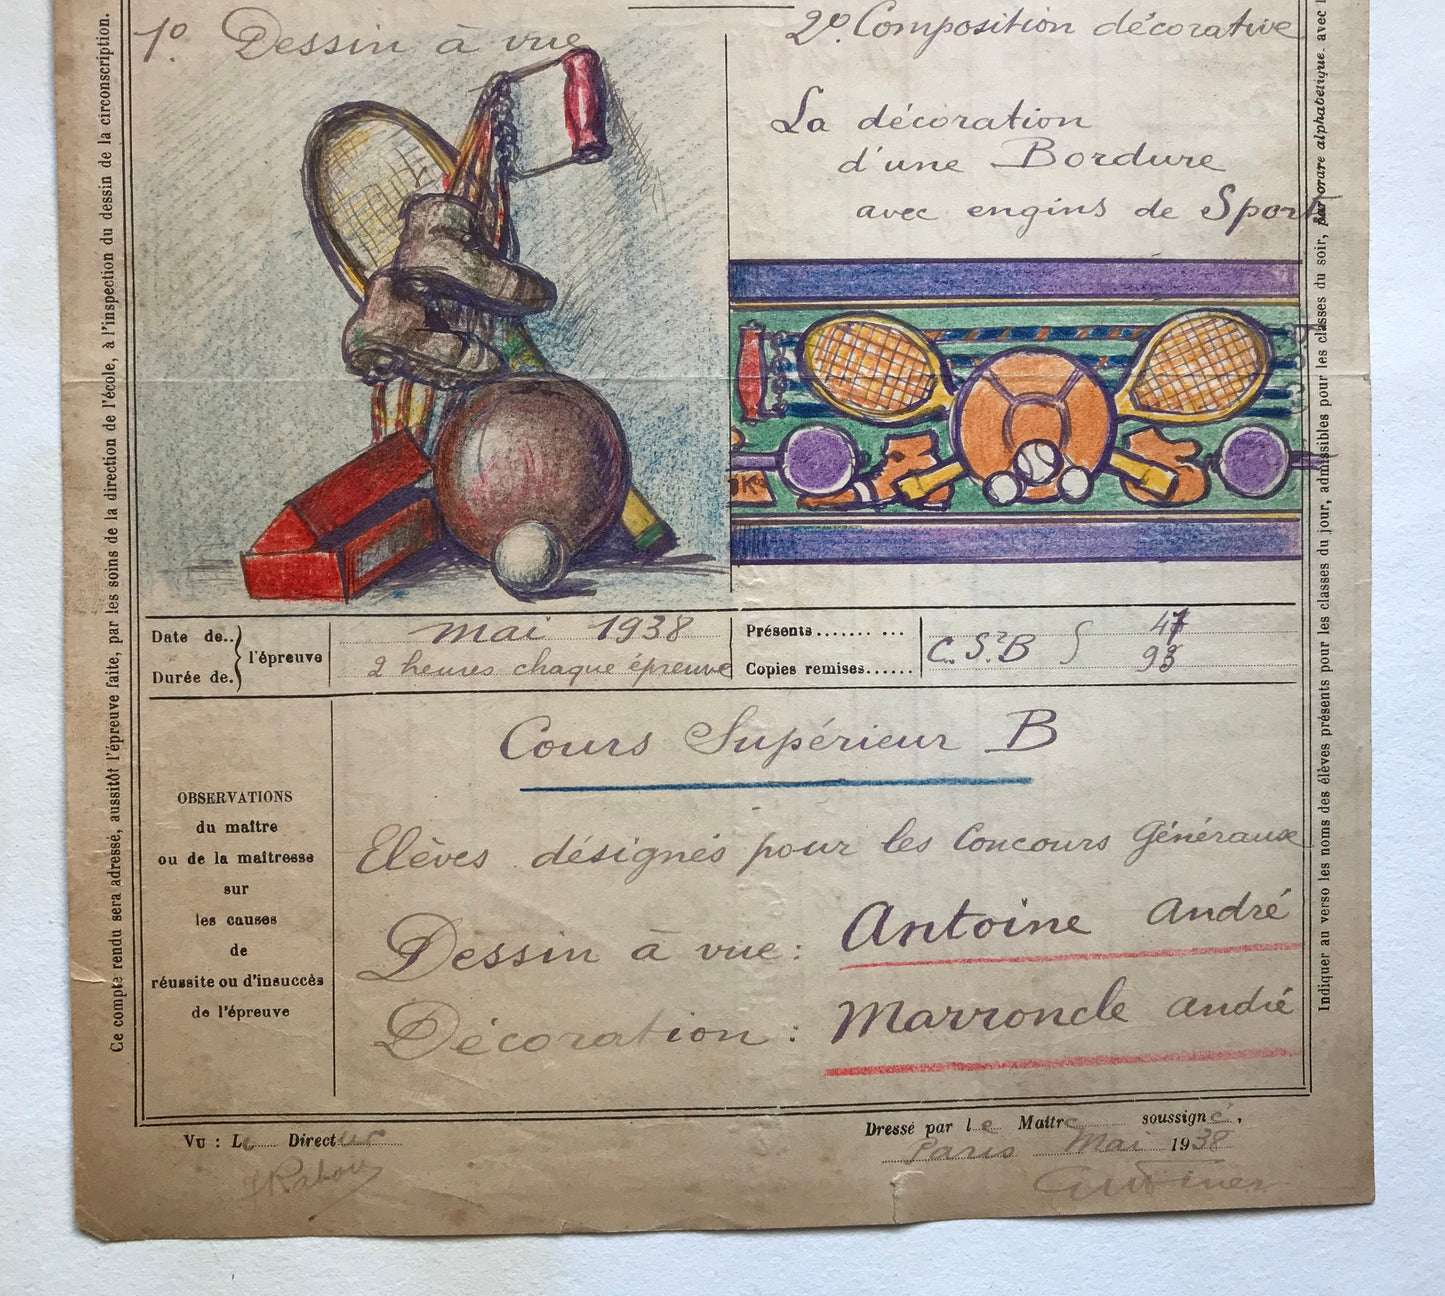 Ce compte rendu sera adressé, aussitôt l'épreuve faite, par les soins de la direction de l'école, à l'inspection du dessin de la circonscription.
1º Dessin à vue
2º. Composition décorative
La décoration
d'une Bordure
avec engins de Sport
Date de..
Durée de.
l'épreuve
mai 1938
2 heures chaque épreuve
Présents....... ...
Copies remises......
C. S.2 B
47
93
OBSERVATIONS
du maître
ou de la maîtresse
sur
les causes
de
réussite ou d'insuccès
de l'épreuve
Cours Supérieur B
Elèves désignés pour les Concours Généraux
Dessin à vue : Antoine André
Décoration : Marroncle André
Vu : Le Directeur
Dressé par le Maître soussigné,
Paris Mai 1938
Indiquer au verso les noms des élèves présents pour les classes du jour, admissibles pour les classes du soir, par ordre alphabétique. avec